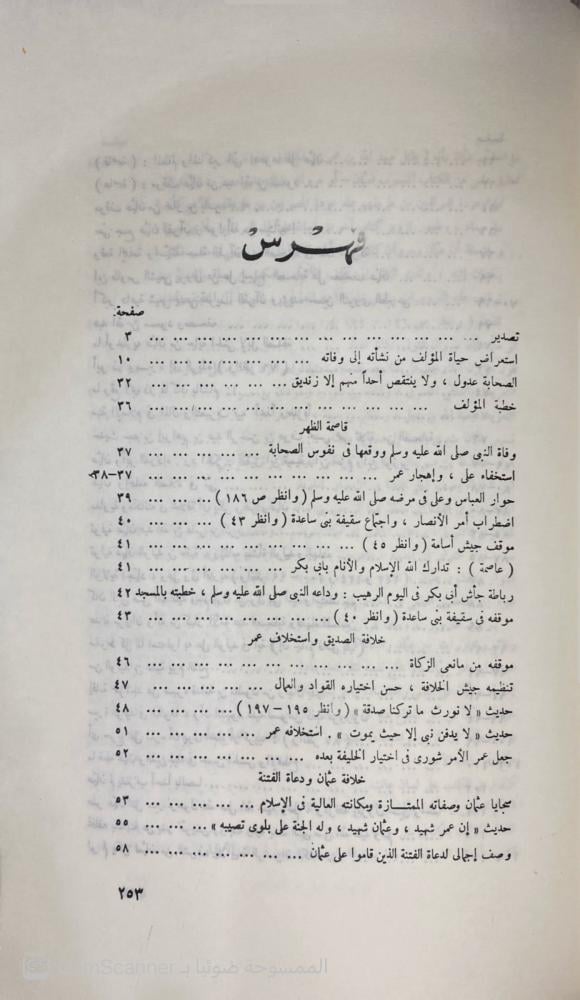 فهرس
صفحة
تصدير ... ... ... ... ... ... ... ... ... ... ... ... ... ... ٣
استعراض حياة المؤلف من نشأته إلى وفاته ... ... ... ... ... ... ... ١٠
الصحابة عدول ، ولا ينتقص أحداً منهم إلا زنديق ... ... ... ... ... ... ٣٢
خطبة المؤلف ... ... ... ... ... ... ... ... ... ... ... ... ٣٦
قاصمة الظهر
وفاة النبي صلى الله عليه وسلم ووقعها في نفوس الصحابة ... ... ... ... ... ٣٧
استخفاء على ، وإهجار عمر ... ... ... ... ... ... ... ... ... ... ٣٧-٣٨
حوار العباس وعلى في مرضه صلى الله عليه وسلم ( وانظر ص ١٨٦ ) ... ... ... ٣٩
اضطراب أمر الأنصار ، واجتماع سقيفة بنى ساعدة ( وانظر ٤٣ ) ... ... ... ٤٠
موقف جيش أسامة ( وانظر ٤٥ ) ... ... ... ... ... ... ... ... ... ٤١
( عاصمة ) : تدارك الله الإسلام والأنام بابي بكر ... ... ... ... ... ... ٤١
رباطة جأش أبى بكر في اليوم الرهيب : وداعه النبى صلى الله عليه وسلم ، خطبته بالمسجد ٤٢
موقفه في سقيفة بنى ساعدة ( وانظر ٤٠ ) ... ... ... ... ... ... ... ٤٣
خلافة الصديق واستخلاف عمر
موقفه من مانعى الزكاة ... ... ... ... ... ... ... ... ... ... ... ٤٦
تنظيمه جيش الخلافة ، حسن اختياره القواد والعمال ... ... ... ... ... ٤٧
حديث « لا نورث ما تركنا صدقة » ( وانظر ١٩٥ - ١٩٧ ) ... ... ... ... ٤٨
حديث « لا يدفن نبى إلا حيث يموت » . استخلافه عمر ... ... ... ... ... ٥١
جعل عمر الأمر شورى في اختيار الخليفة بعده ... ... ... ... ... ... ... ٥٢
خلافة عثمان ودعاة الفتنة
سجايا عثمان وصفاته الممتازة ومكانته العالية في الإسلام ... ... ... ... ... ٥٣
حديث « إن عمر شهيد ، وعثمان شهيد ، وله الجنة على بلوى تصيبه » ... ... ... ٥٥
وصف إجمالى لدعاة الفتنة الذين قاموا على عثمان ... ... ... ... ... ... ... ٥٨
٢٥٣
الممسوحة ضوئيا بـ CamScanner